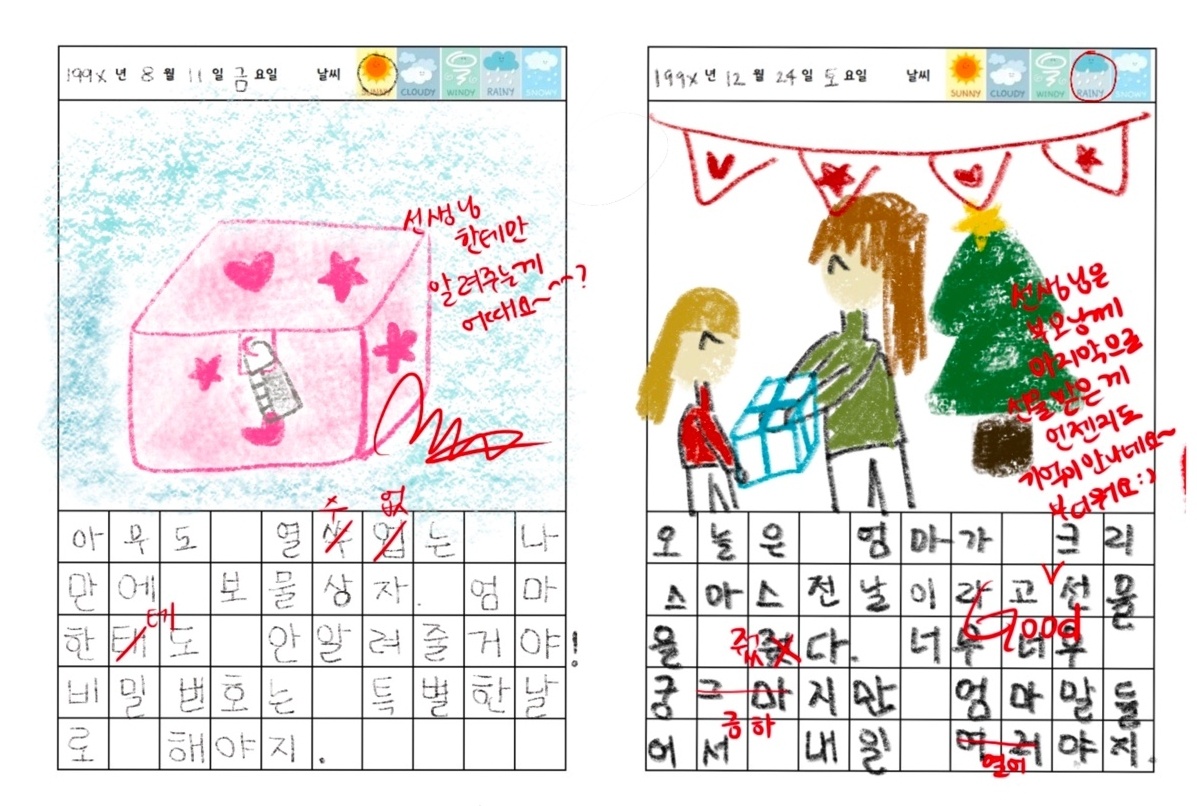 199X 년 8 월 11 일 금 요일 날씨 SUNNY CLOUDY WINDY RAINY SNOWY
선생님
한테만
알려주는게
어때요~~~?
수 없
아무도 열쑤 업는 나
만에 보물상자. 엄마
테
한태도 안알려줄거야!
비밀번호는 특별한날
로 해야지.
199X 년 12 월 24 일 토 요일 날씨 SUNNY CLOUDY WINDY RAINY SNOWY
선생님은
부모님께
마지막으로
선물 받은게
언젠지도
기억이 안나네요~
부러워요:)
오늘은 엄마가 크리
스마스전날이라고선물
Good
을 줬다. 너무너무
궁그마지만 엄마말들
금하
어서 내일 여러야지.
열어